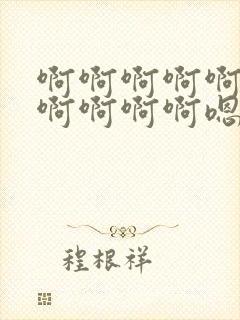 啊啊啊啊啊
啊啊啊啊嗯
程根祥